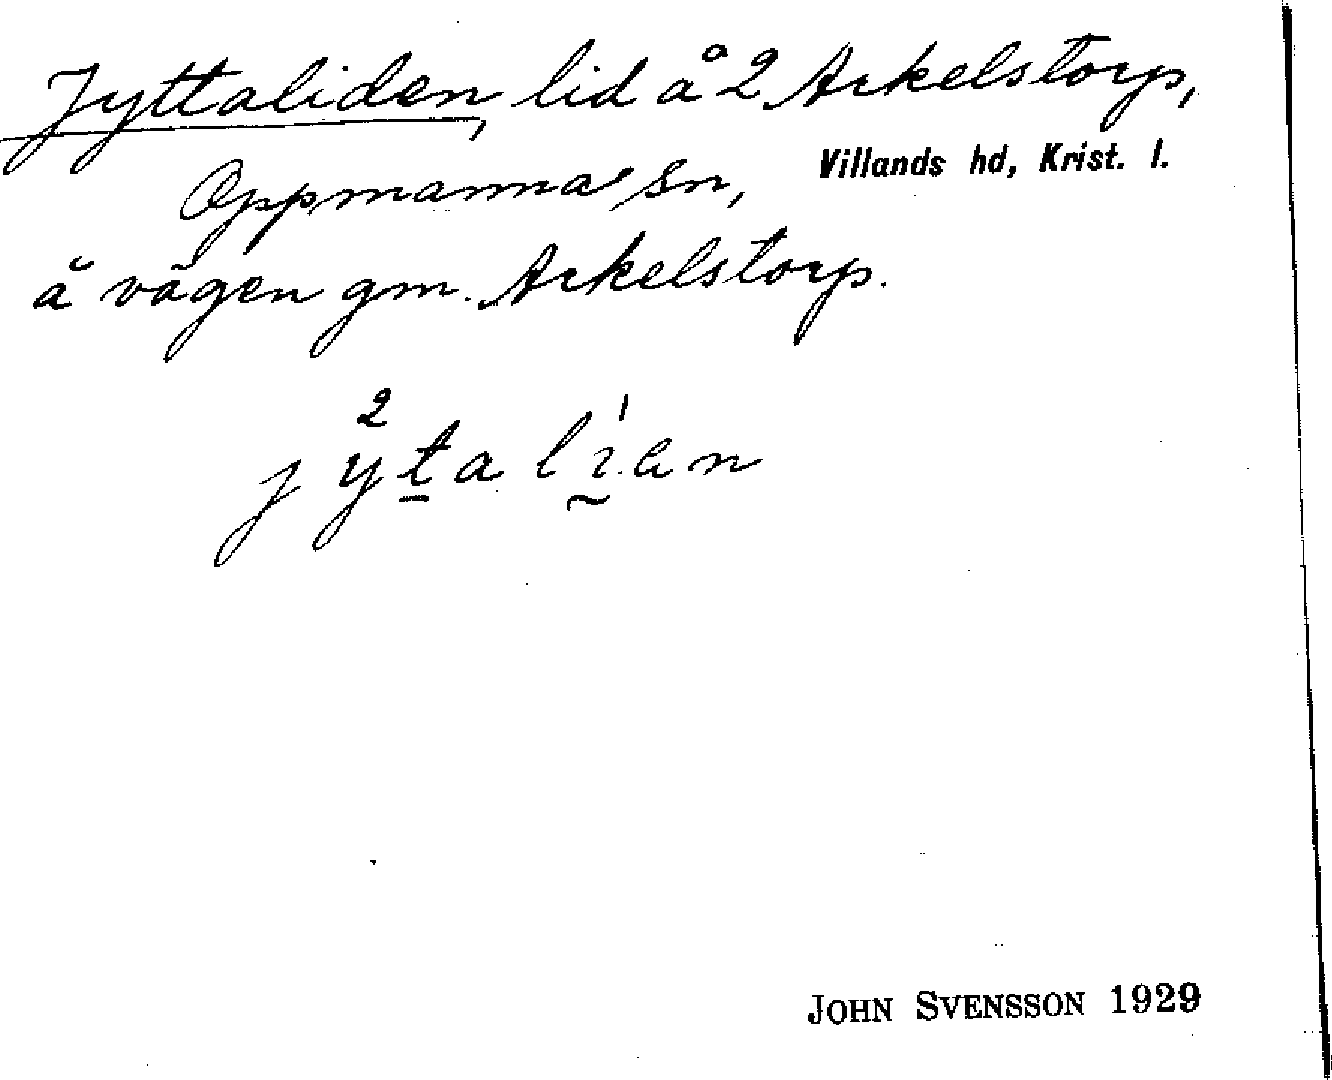 Jyttaliden, lid å 2 Arkelstorp,
Oppmanna sn, Villands hd, Krist. l.
å vägen gm. Arkelstorp.
2 ˈ
jytalien
JOHN SVENSSON 1929